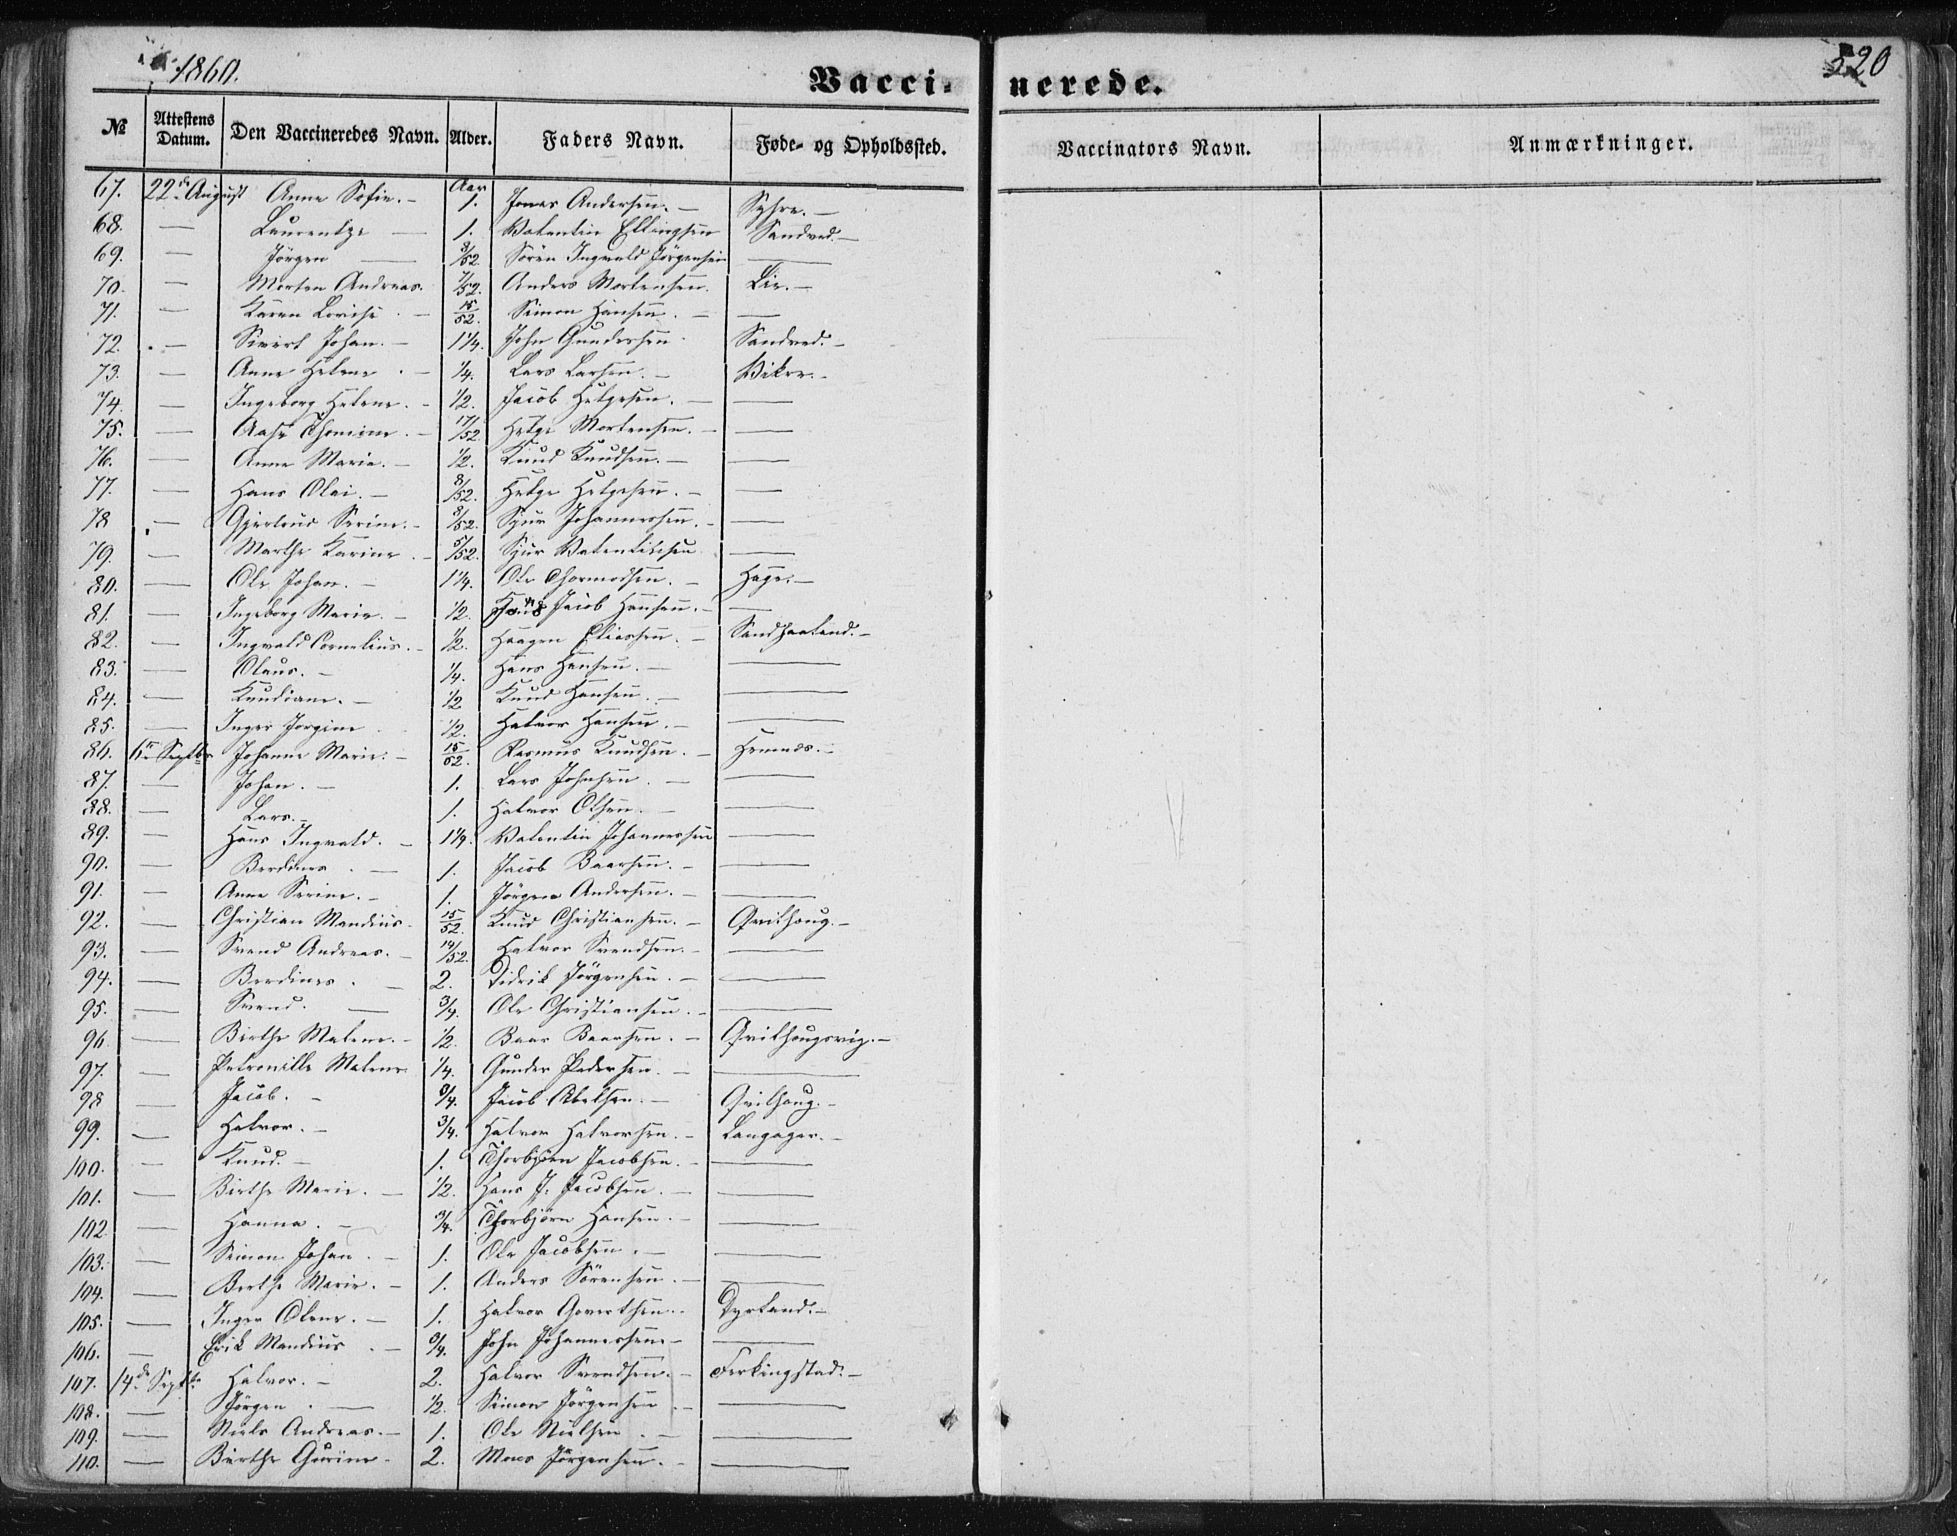 1860.
320
Vaccinerede.
№ Attestens Datum. Den Vaccineredes Navn. Alder. Faders Navn. Føde- og Opholdssted. Vaccinators Navn. Anmærkninger.
67. 22de August Anne Sofie. – Aar 1. Jonas Andersen. – Syhre. –
68. — Laurentze — 1. Valentin Ellingsen Sandved. –
69. — Jörgen — 8/52. Sören Ingvald Jörgensen —
70. — Morten Andreas. 7/52. Anders Mortensen. Lie. –
71. — Karen Lovise. – 15/52. Simon Hansen. – —
72. — Sivert Johan. – 1 1/4. John Gundersen. Sandved. –
73. — Anne Helene. – 1/4. Lars Larsen. – Vikre. –
74. — Ingeborg Helene. – 1/2. Jacob Helgesen. – —
75. — Aase Thomine. – 17/52 Helge Mortensen. – —
76. — Anne Marie. – 1/2. Knud Knudsen. – —
77. — Hans Olai. – 8/52. Helge Helgesen. – —
78 — Gjertrud Serine. – 8/52. Sjur Johannessen. – —
79. — Marthe Karine. – 5/52. Sjur Valentinsen —
80. — Ole Johan. – 1 1/4. Ole Thormodsen. – Hage. –
81. — Ingeborg Marie. – 1/2. Jacob Hansen. – —
82. — Ingvald Cornelius. – 1/2. Haagen Eliassen. – Sandhaaland. –
83. — Olaus. – 1/4. Hans Hansen. – —
84. — Knudiane. – 1/2 Knud Hansen. – —
85. — Inger Jorgine 1/2. Halvor Hansen. – —
86. 6te Septbr Johanne Marie. – 15/52. Rasmus Knudsen. – Hemnæs. –
87. — Johan. – 1. Lars Johnsen. – —
88. — Lars. – 1. Halvor Olsen. – —
89. — Hans Ingvald. – 1 1/4. Valentin Johannessen —
90. — Berdines. – 1. Jacob Baarsen. – —
91. — Anne Serine. – 1. Jörgen Andersen. – —
92. — Christian Mandius. 15/52. Knud Christiansen. – Qvilhaug. –
93. — Svend Andreas. – 14/52. Halvor Svendsen. – —
94. — Berdines. – 2. Didrik Jörgensen. – —
95. — Svend. — 3/4. Ole Christiansen. – —
96. — Birthe Malene. – 1/2. Baar Baarsen. – Qvilhaugsvig. –
97. — Petronille Malene. 1/4. Gunder Pedersen. – —
98 — Jacob. – 3/4. Jacob Abelsen. – Qvilhaug. –
99. — Halvor. – 3/4. Halvor Halvorsen. – Langager. –
100. — Knud. – 1. Thorbjörn Jacobsen. – —
101. — Birthe Marie. – 1/2. Hans J. Jacobsen. – —
102 — Hanna. – 3/4. Thorbjörn Hansen. – —
103. — Simon Johan. – 1. Ole Jacobsen. – —
104. — Berthe Marie. – 1. Anders Sörensen. – —
105. — Inger Olene. – 1. Halvor Govertsen. – Dyrland. –
106. — Erik Mandius. – 3/4. John Johannessen – —
107. 14de Septbr Halvor. – 2. Halvor Svendsen. – Ferkingstad. –
108. — Jörgen. — 1/2. Simon Jörgensen – —
109. — Niels Andreas. – 1. Ole Nielsen. – —
110. — Birthe Gurine. 2. Mons Jörgensen. – —